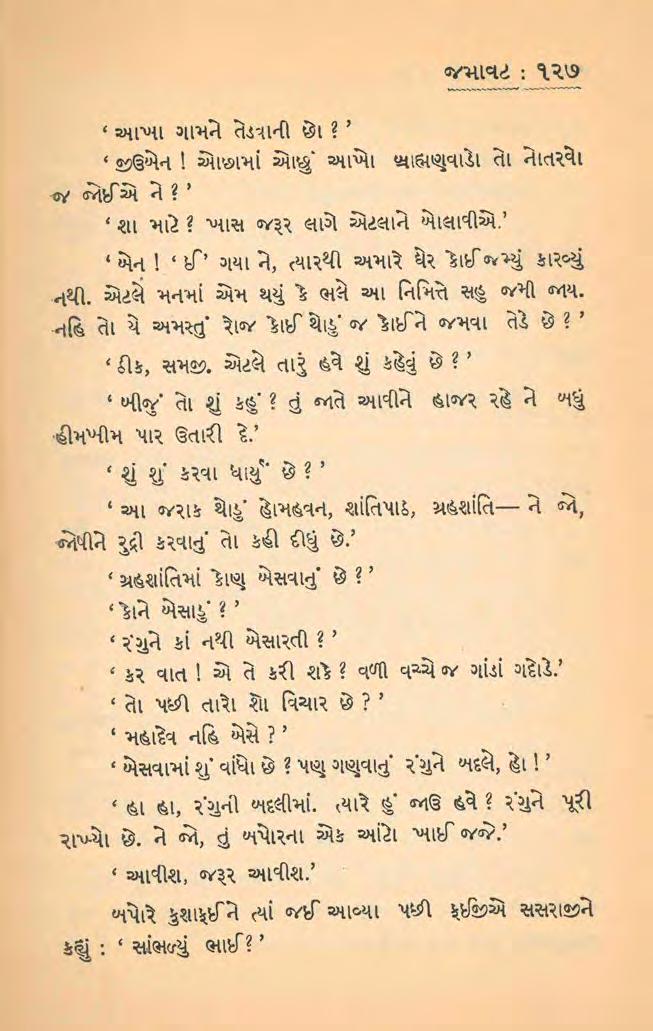 જમાવટ : ૧૨૭
‘ આખા ગામને તેડવાની છો ? ’
‘ જીઉબેન ! ઓછામાં ઓછું આખો બ્રાહ્મણવાડો તો નોતરવો
જ જોઈએ ને ? ’
‘ શા માટે ? ખાસ જરૂર લાગે એટલાને બોલાવીએ.’
‘ બેન ! ‘ ઈ’ ગયા ને, ત્યારથી અમારે ઘેર કોઈ જમ્યું કારવ્યું
નથી. એટલે મનમાં એમ થયું કે ભલે આ નિમિત્તે સહુ જમી જાય.
નહિ તો યે અમસ્તું રોજ કોઈ થોડું જ કોઈને જમવા તેડે છે ? ’
‘ ઠીક, સમજી. એટલે તારું હવે શું કહેવું છે ? ’
‘ બીજું તો શું કહું ? તું જાતે આવીને હાજર રહે ને બધું
હીમખીમ પાર ઉતારી દે.’
‘ શું શું કરવા ધાર્યું છે ? ’
‘ આ જરાક થોડું હોમહવન, શાંતિપાઠ, ગ્રહશાંતિ— ને જો,
જોષીને રુદ્રી કરવાનું તો કહી દીધું છે.’
‘ ગ્રહશાંતિમાં કોણ બેસવાનું છે ? ’
‘ કોને બેસાડું ? ’
‘ રંગુને કાં નથી બેસારતી ? ’
‘ કર વાત ! એ તે કરી શકે ? વળી વચ્ચે જ ગાંડાં ગદોડે.’
‘ તો પછી તારો શો વિચાર છે ? ’
‘ મહાદેવ નહિ બેસે ? ’
‘ બેસવામાં શું વાંધો છે ? પણ ગણવાનું રંગુને બદલે, હો ! ’
‘ હા હા, રંગુની બદલીમાં. ત્યારે હું જાઉ હવે ? રંગુને પૂરી
રાખ્યો છે. ને જો, તું બપોરના એક આંટો ખાઈ જજે.’
‘ આવીશ, જરૂર આવીશ.’
બપોરે કુશાફઈને ત્યાં જઈ આવ્યા પછી ફઈજીએ સસરાજીને
કહ્યું : ‘ સાંભળ્યું ભાઈ? ’